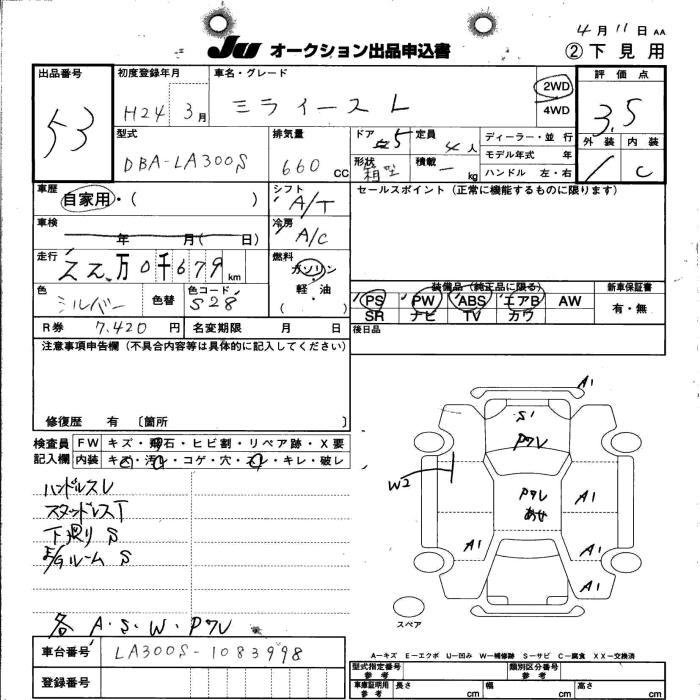 4月11日 AA
JU オークション出品申込書 ②下見用
出品番号 53
初度登録年月 H24 3月
車名・グレード ミライース L
2WD
4WD
評価点 3.5
外装 内装
1 C
型式 DBA-LA300S
排気量 660 CC
ドア 5
定員 4人
形状 箱型
積載 － kg
ディーラー・並行
モデル年式 年
ハンドル 左・右
車歴 自家用・( )
シフト A/T
セールスポイント(正常に機能するものに限ります)
車検 年 月( 日)
冷房 A/C
走行 22万0千679km
燃料 ガソリン
軽・油
( )
色 シルバー
色替
色コード S28
装備品(純正品に限る)
新車保証書
PS PW ABS エアB AW
SR ナビ TV カワ
有・無
R券 7,420円
名変期限 月 日
後日品
注意事項申告欄(不具合内容等は具体的に記入してください)
修復歴 有〔箇所 〕
検査員
記入欄
FW キズ・飛石・ヒビ割・リペア跡・X要
内装 キズ・汚れ・コゲ・穴・・キレ・破レ
ハンドルスレ
下廻り S
ルーム S
各 A・S・W・Pワレ
A1
S1
Pワレ
W2
Pワレ
あせ
A1
A1
A1
A1
スペア
A－キズ E－エクボ U－凹み W－補修跡 S－サビ C－腐食 XX－交換済
車台番号 LA300S-1083998
登録番号
型式指定番号 参考
類別区分番号 参考
車庫証明用 参考
長さ cm
幅 cm
高さ cm